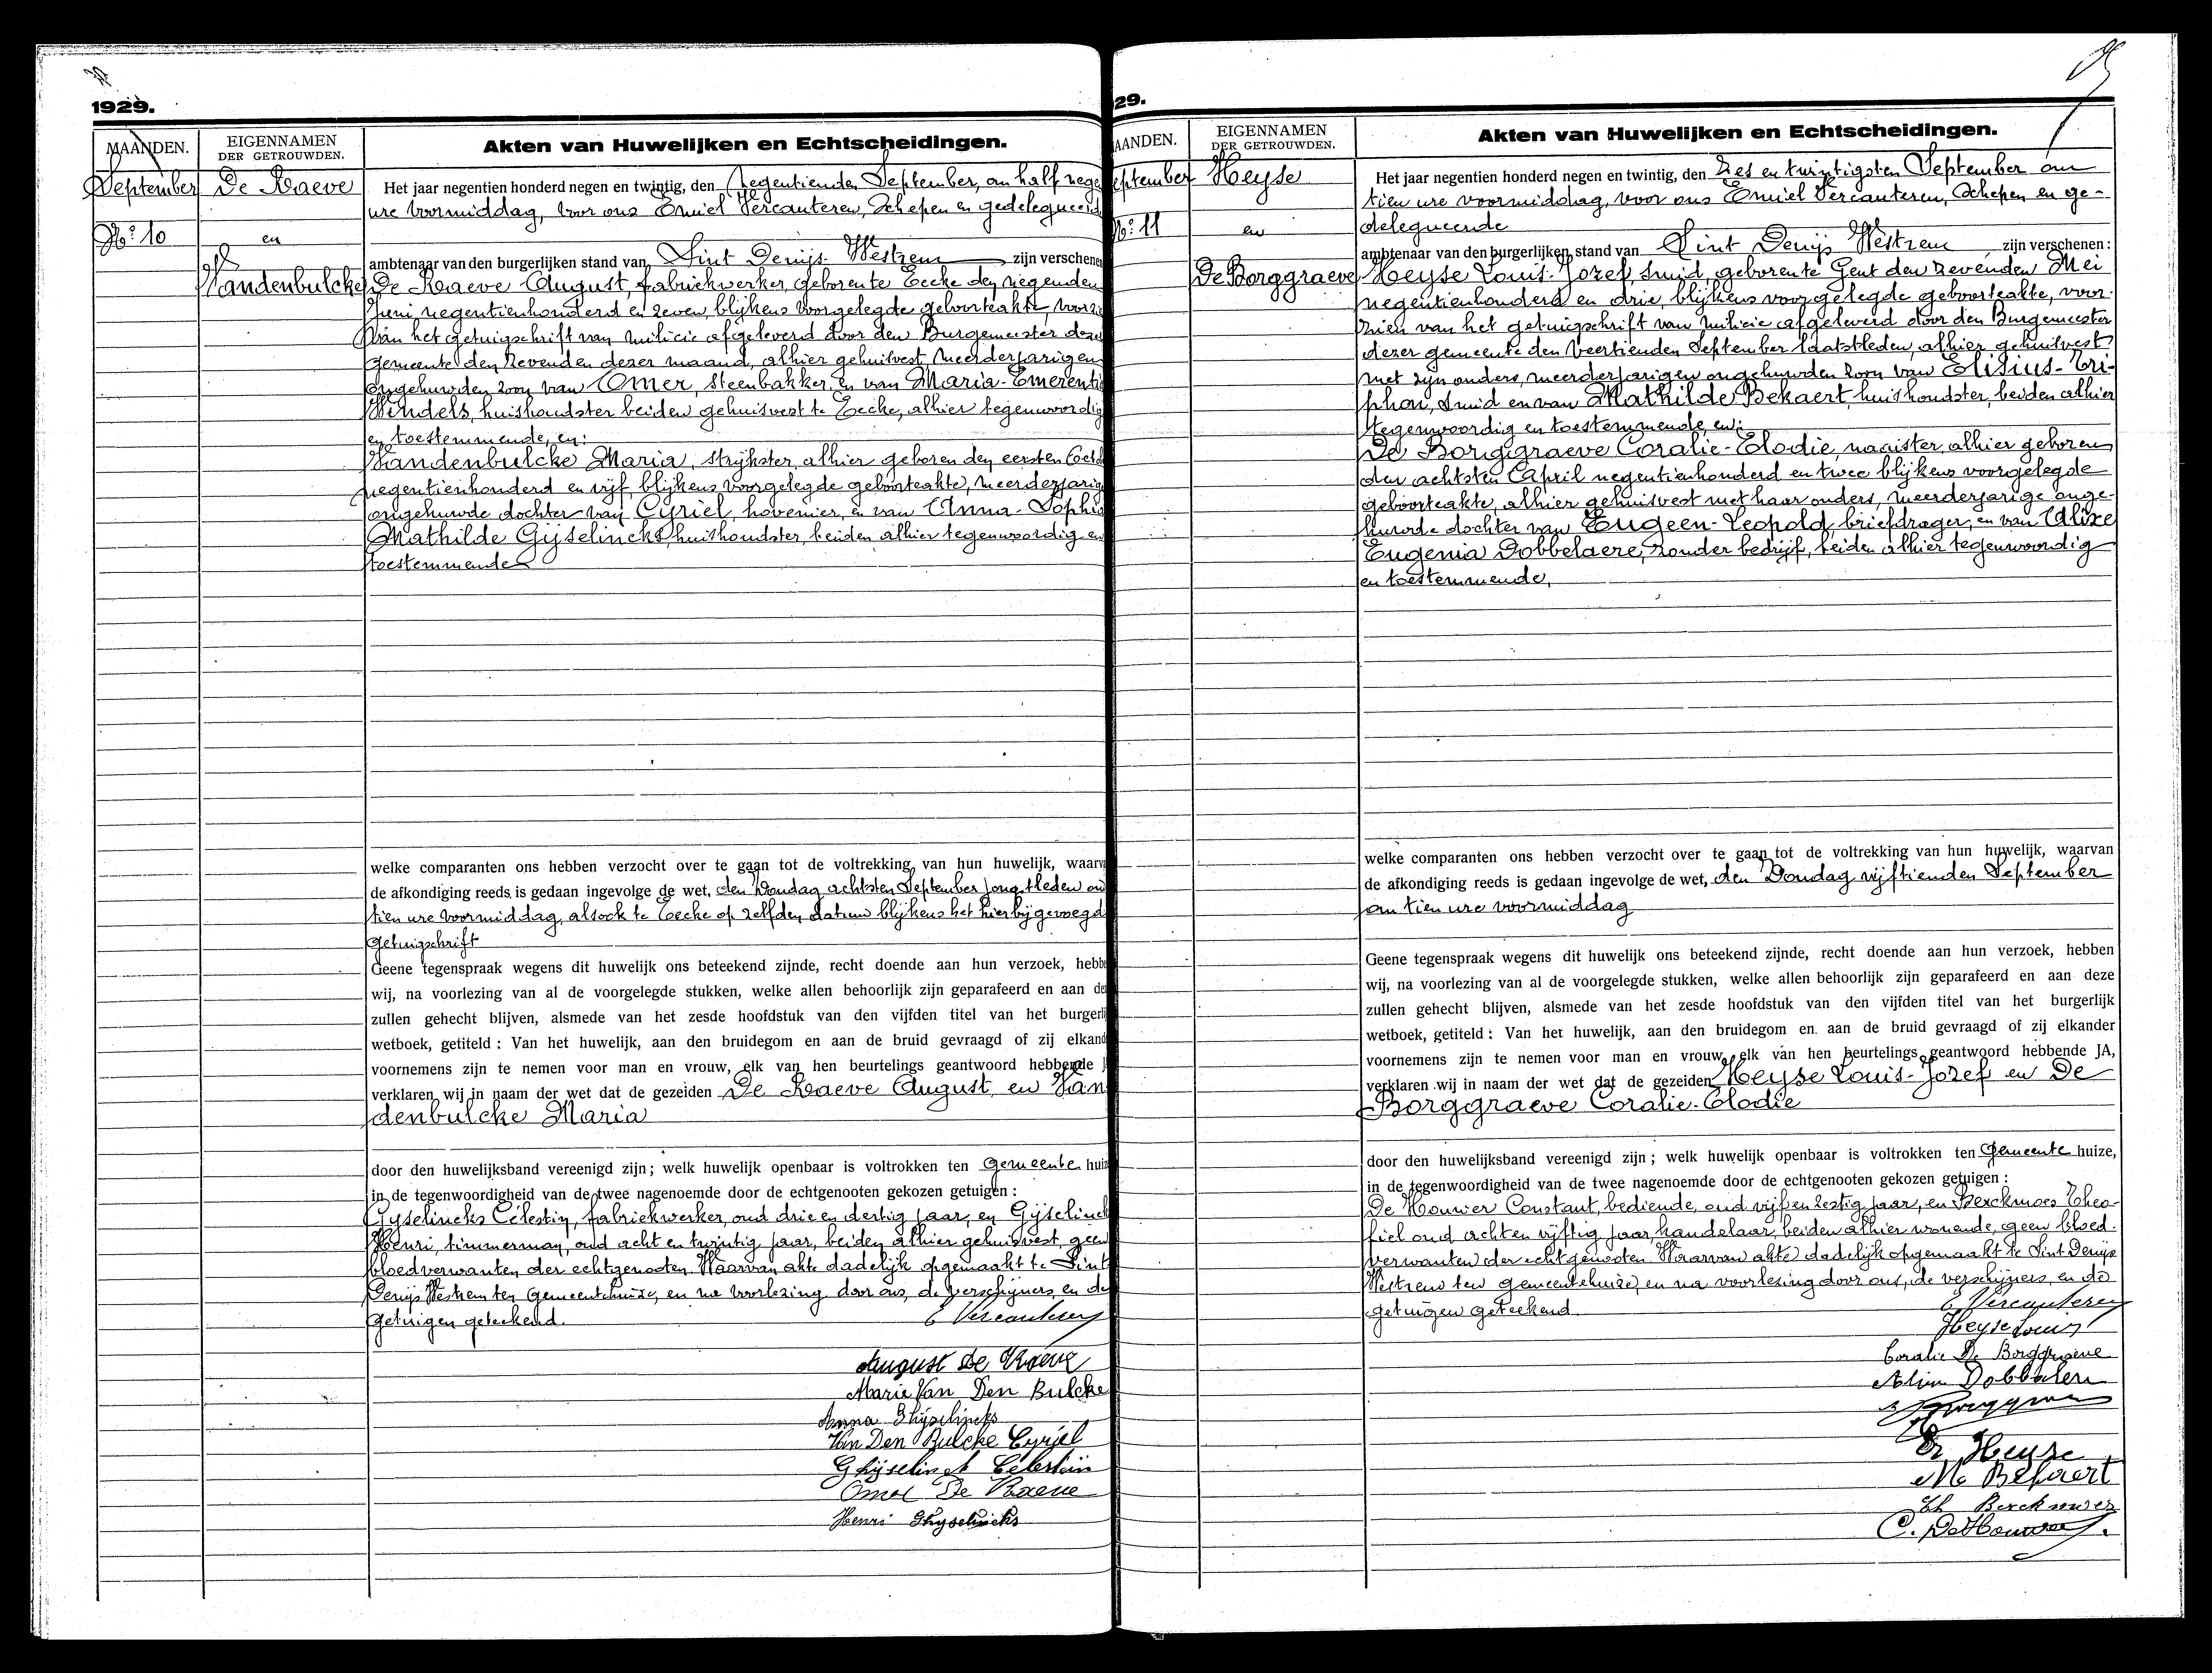 1929.
MAANDEN.
EIGENNAMEN
DER GETROUWDEN.
Akten van Huwelijken en Echtscheidingen.
September
De Raeve
Het jaar negentien honderd negen en twintig, den Negentienden September, om half nege
ure voormiddag, voor ons Emiel Vercauteren, Schepen en gedelegueerd
No: 10
en
ambtenaar van den burgerlijken stand van Sint Denijs Westrem zijn verschene
Vandenbulcke
De Raeve August, fabriekwerker, geboren te Eecke den negenden
Juni negentienhonderd en zeven, blijkens voorgelegde geboorteakte, voorzi
van het getuigschrift van milicie afgeleverd door den Burgemeester dezer
gemeente den zevenden dezer maand, alhier gehuisvest, meerderjarigen
ongehuwden zoon van Omer, steenbakker, en van Maria-Emerentia
Windels, huishoudster beiden gehuisvest te Eecke, alhier tegenwoordig
en toestemmende, en:
Vandenbulcke Maria, strijkster, alhier geboren den eersten Octo
negentienhonderd en vijf, blijkens voorgelegde geboorteakte, meerderjarig
ongehuwde dochter van Cyriel, hovenier, en van Anna-Sophia
Mathilde Gijselincks, huishoudster, beiden alhier tegenwoordig en
toestemmende
welke comparanten ons hebben verzocht over te gaan tot de voltrekking van hun huwelijk, waarva
de afkondiging reeds is gedaan ingevolge de wet, den Zondag achtsten September jongstleden om
tien ure voormiddag, alsook te Eecke op zelfden datum blijkens het hierbijgevoegd
getuigschrift
Geene tegenspraak wegens dit huwelijk ons beteekend zijnde, recht doende aan hun verzoek, hebbe
wij, na voorlezing van al de voorgelegde stukken, welke allen behoorlijk zijn geparafeerd en aan de
zullen gehecht blijven, alsmede van het zesde hoofdstuk van den vijfden titel van het burgerli
wetboek, getiteld : Van het huwelijk, aan den bruidegom en aan de bruid gevraagd of zij elkand
voornemens zijn te nemen voor man en vrouw, elk van hen beurtelings geantwoord hebbende J
verklaren wij in naam der wet dat de gezeiden De Raeve August en Van
denbulcke Maria
door den huwelijksband vereenigd zijn; welk huwelijk openbaar is voltrokken ten Gemeente huiz
in de tegenwoordigheid van de twee nagenoemde door de echtgenooten gekozen getuigen :
Gyselincks Célestin, fabriekwerker, oud drie en dertig jaar, en Gijselinck
Henri, timmerman, oud acht en twintig jaar, beiden alhier gehuisvest, geen
bloedverwanten der echtgenooten. Waarvan akte dadelijk opgemaakt te Sint
Denijs Westrem ten Gemeentehuize, en na voorlezing door ons, de verschijners en de
getuigen geteekend.
E Vercauteren
August De Raeve
Marie Van Den Bulcke
Anna Ghijselincks
Van Den Bulcke Cyriel
Ghijselinck Celestin
Omer De Raeve
Henri Ghyselincks
29.
AANDEN.
EIGENNAMEN
DER GETROUWDEN.
Akten van Huwelijken en Echtscheidingen.
eptember
Heyse
Het jaar negentien honderd negen en twintig, den Zes en twintigsten September om
tien ure voormiddag, voor ons Emiel Vercauteren, Schepen en ge-
No: 11
en
delegueerde
ambtenaar van den burgerlijken stand van Sint Denijs Westrem zijn verschenen:
De Borggraeve
Heyse Louis-Jozef, smid, geboren te Gent den zevenden Mei
negentienhonderd en drie, blijkens voorgelegde geboorteakte, voor-
zien van het getuigschrift van milicie afgeleverd door den Burgemeester
dezer gemeente den veertienden September laatstleden, alhier gehuisvest
met zijn ouders, meerderjarigen ongehuwden zoon van Elisius-Tri-
phon, smid en van Mathilde Bekaert, huishoudster, beiden alhier
tegenwoordig en toestemmende, en:
De Borggraeve Coralie-Elodie, naaister, alhier geboren
den achtsten April negentienhonderd en twee blijkens voorgelegde
geboorteakte, alhier gehuisvest met haar ouders, meerderjarige onge-
huwde dochter van Eugeen-Leopold, briefdrager, en van Alixe
Eugenia Dobbelaere, zonder bedrijf, beiden alhier tegenwoordig
en toestemmende,
welke comparanten ons hebben verzocht over te gaan tot de voltrekking van hun huwelijk, waarvan
de afkondiging reeds is gedaan ingevolge de wet, den Zondag vijftienden September
om tien ure voormiddag
Geene tegenspraak wegens dit huwelijk ons beteekend zijnde, recht doende aan hun verzoek, hebben
wij, na voorlezing van al de voorgelegde stukken, welke allen behoorlijk zijn geparafeerd en aan deze
zullen gehecht blijven, alsmede van het zesde hoofdstuk van den vijfden titel van het burgerlijk
wetboek, getiteld : Van het huwelijk, aan den bruidegom en aan de bruid gevraagd of zij elkander
voornemens zijn te nemen voor man en vrouw, elk van hen beurtelings geantwoord hebbende JA,
verklaren wij in naam der wet dat de gezeiden Heyse Louis-Jozef en De
Borggraeve Coralie-Elodie
door den huwelijksband vereenigd zijn; welk huwelijk openbaar is voltrokken ten Gemeente huize,
in de tegenwoordigheid van de twee nagenoemde door de echtgenooten gekozen getuigen :
De Houwer Constant, bediende, oud vijf en zestig jaar, en Berckmoes Theo-
fiel oud acht en vijftig jaar, handelaar, beiden alhier wonende, geen bloed-
verwanten der echtgenooten. Waarvan akte dadelijk opgemaakt te Sint Denijs
Westrem ten gemeentehuize, en na voorlezing door ons, de verschijners, en de
getuigen geteekend.
E Vercauteren
Heyse Louis
Coralie De Borggraeve
Dobbelere
Heyse
M Bekaert
Th Berckmoes
C. De Houwer.